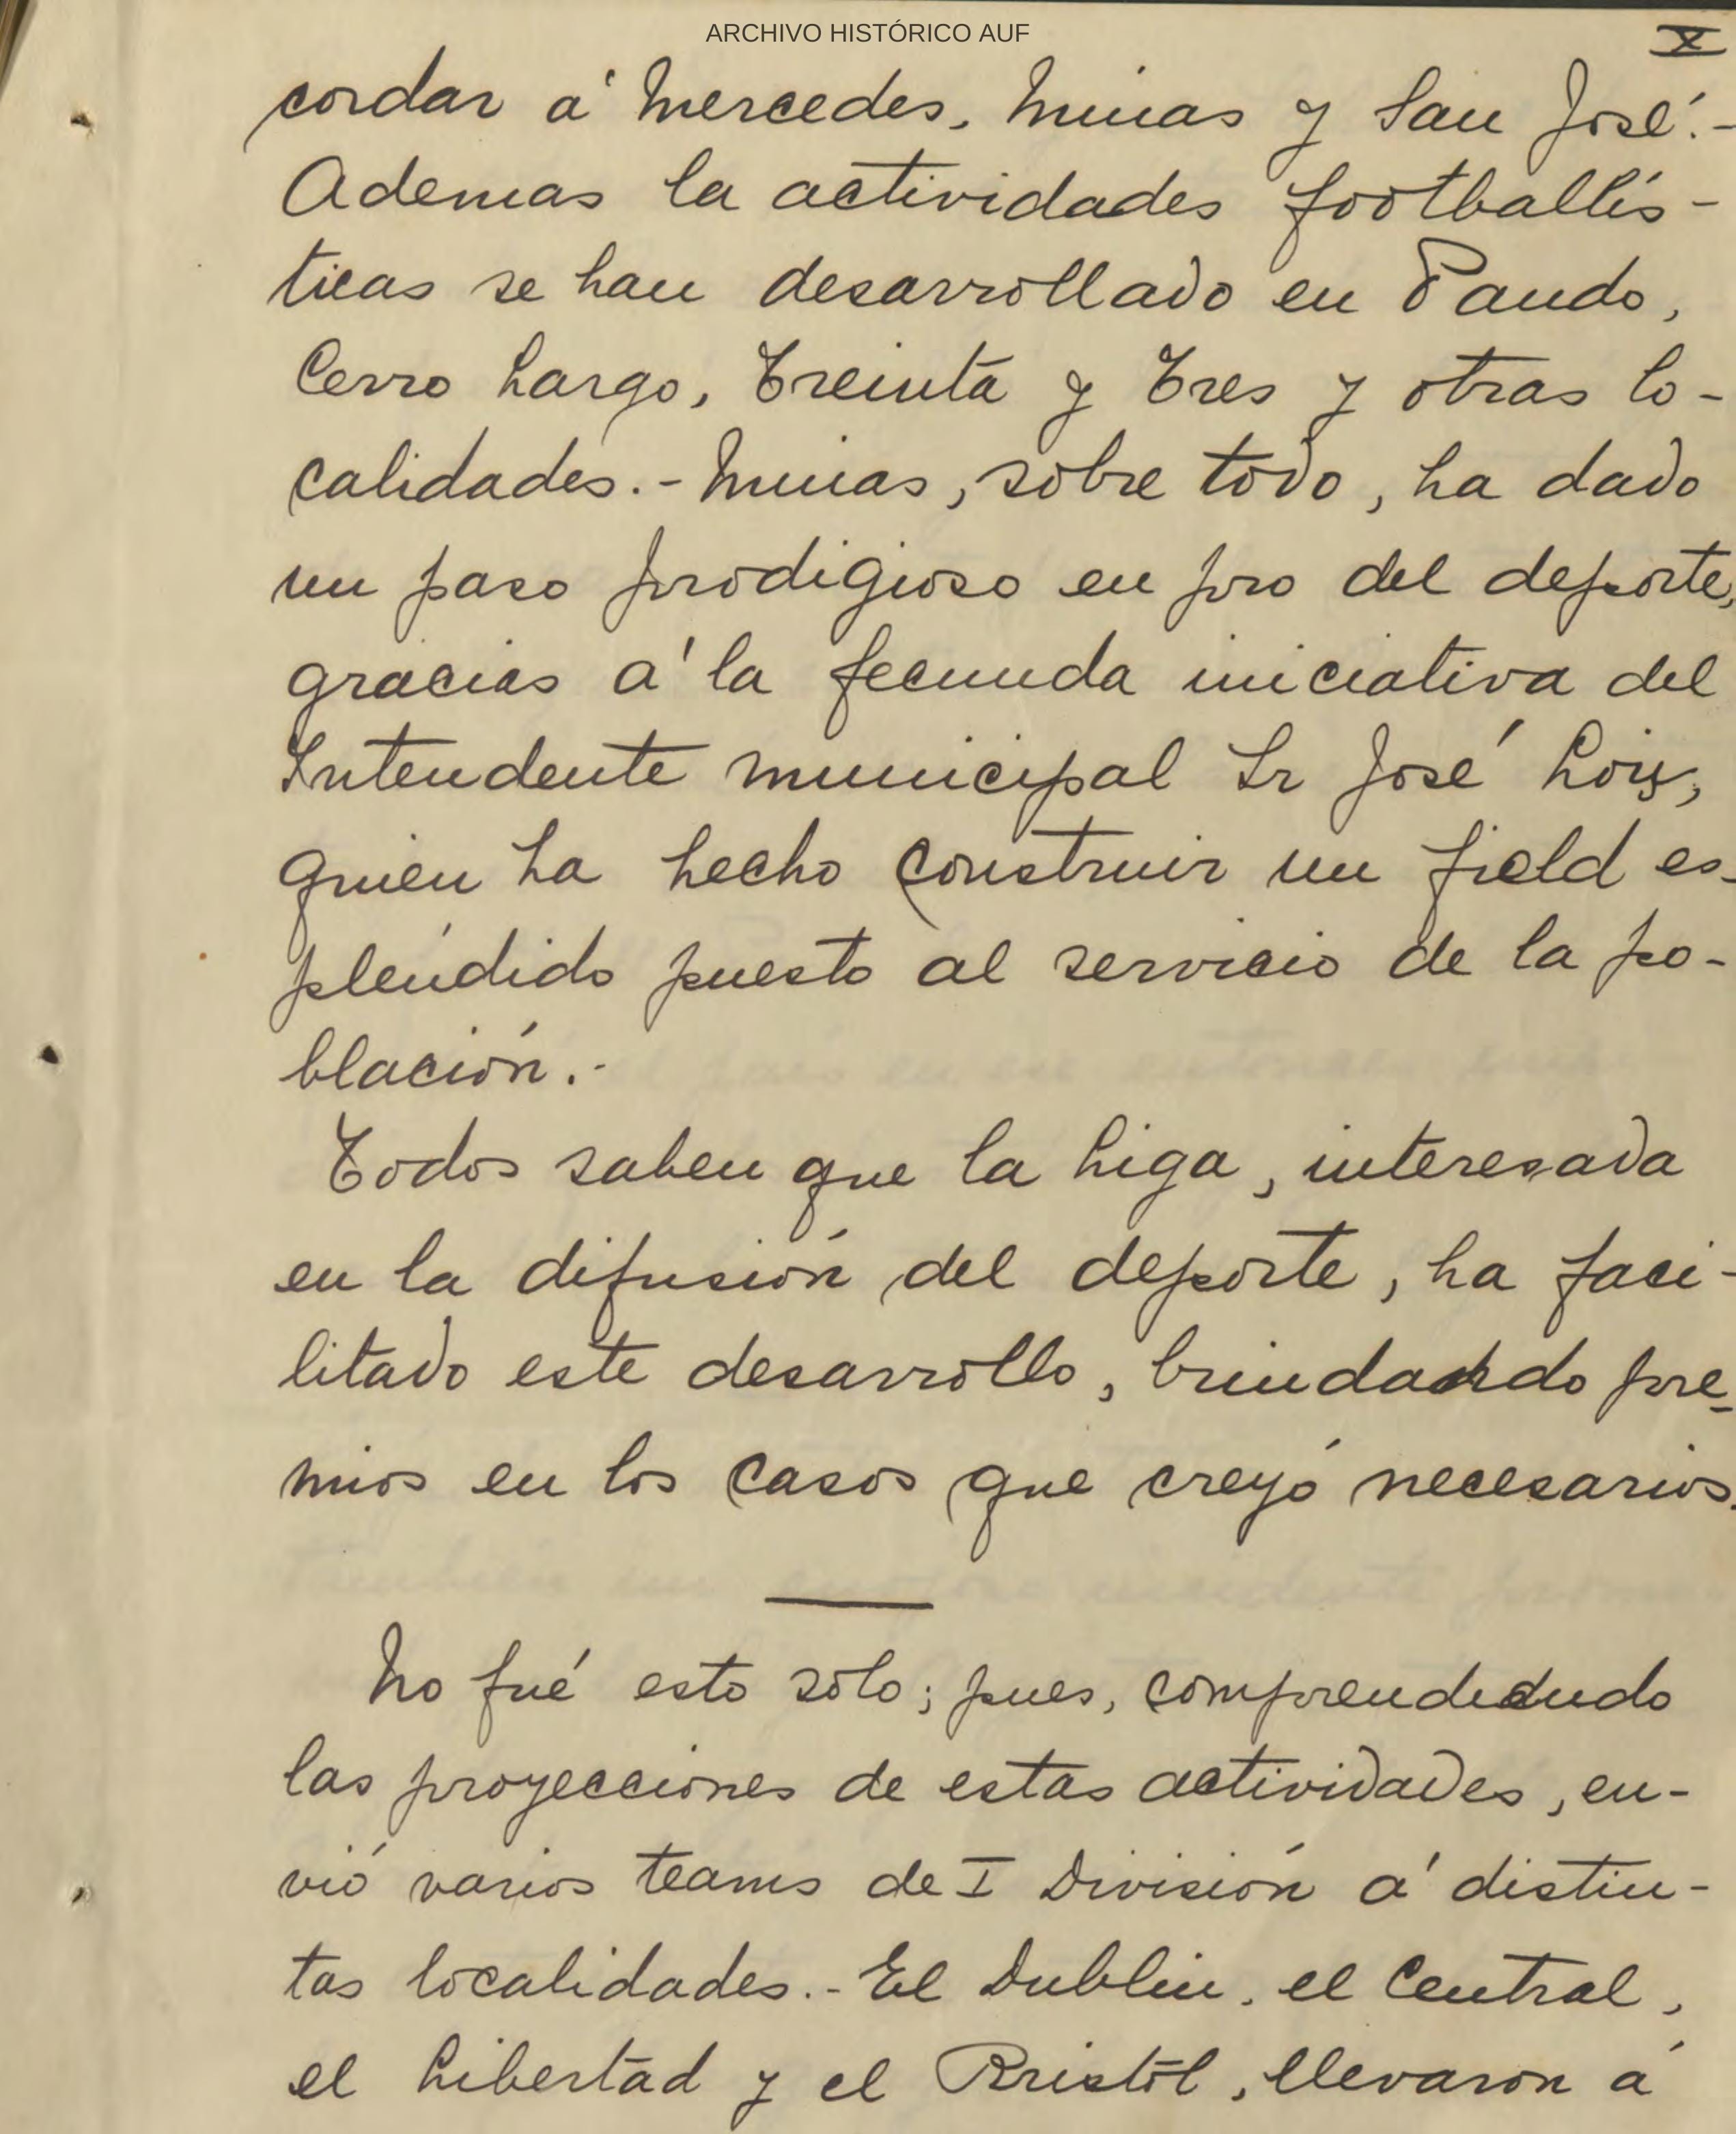 ARCHIVO HISTÓRICO AUF
X
cordar á Mercedes, Minas y San José.-
Ademas la actividades footballís-
ticas se han desarrollado en Pando,
Cerro Largo, Treinta y Tres y otras lo-
calidades.- Minas, sobre todo, ha dado
un paso prodigioso en pro del deporte,
gracias á la fecunda iniciativa del
Intendente municipal Sr José
quien ha hecho construir un field es-
pléndido puesto al servicio de la po-
blación.-
Todos saben que la Liga, interesada
en la difusión del deporte, ha faci-
litado este desarrollo, brindando pre-
mios en los casos que creyó necesarios.
No fué esto sólo; pues, comprendiendo
las proyecciones de estas actividades, en-
vió varios teams de I División á distin-
tas localidades.- El Dublin, el Central,
el Libertad y el Bristol, llevaron á